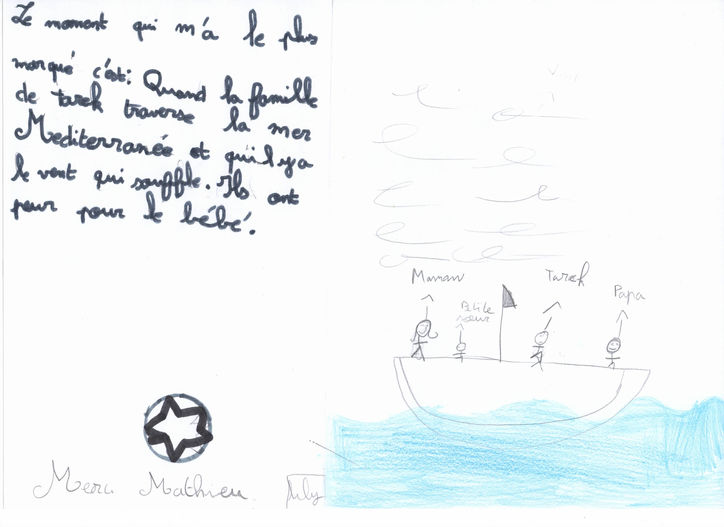 Le moment qui m'a le plus
marqué c'ést: Quand la famille
de tarek traverse la mer
Mediterranée et qu'il y a
le vent qui souffle. Ils ont
peur pour le bébé.
Maman
Petite
sœur
Tarek
Papa
Merci Mathieu